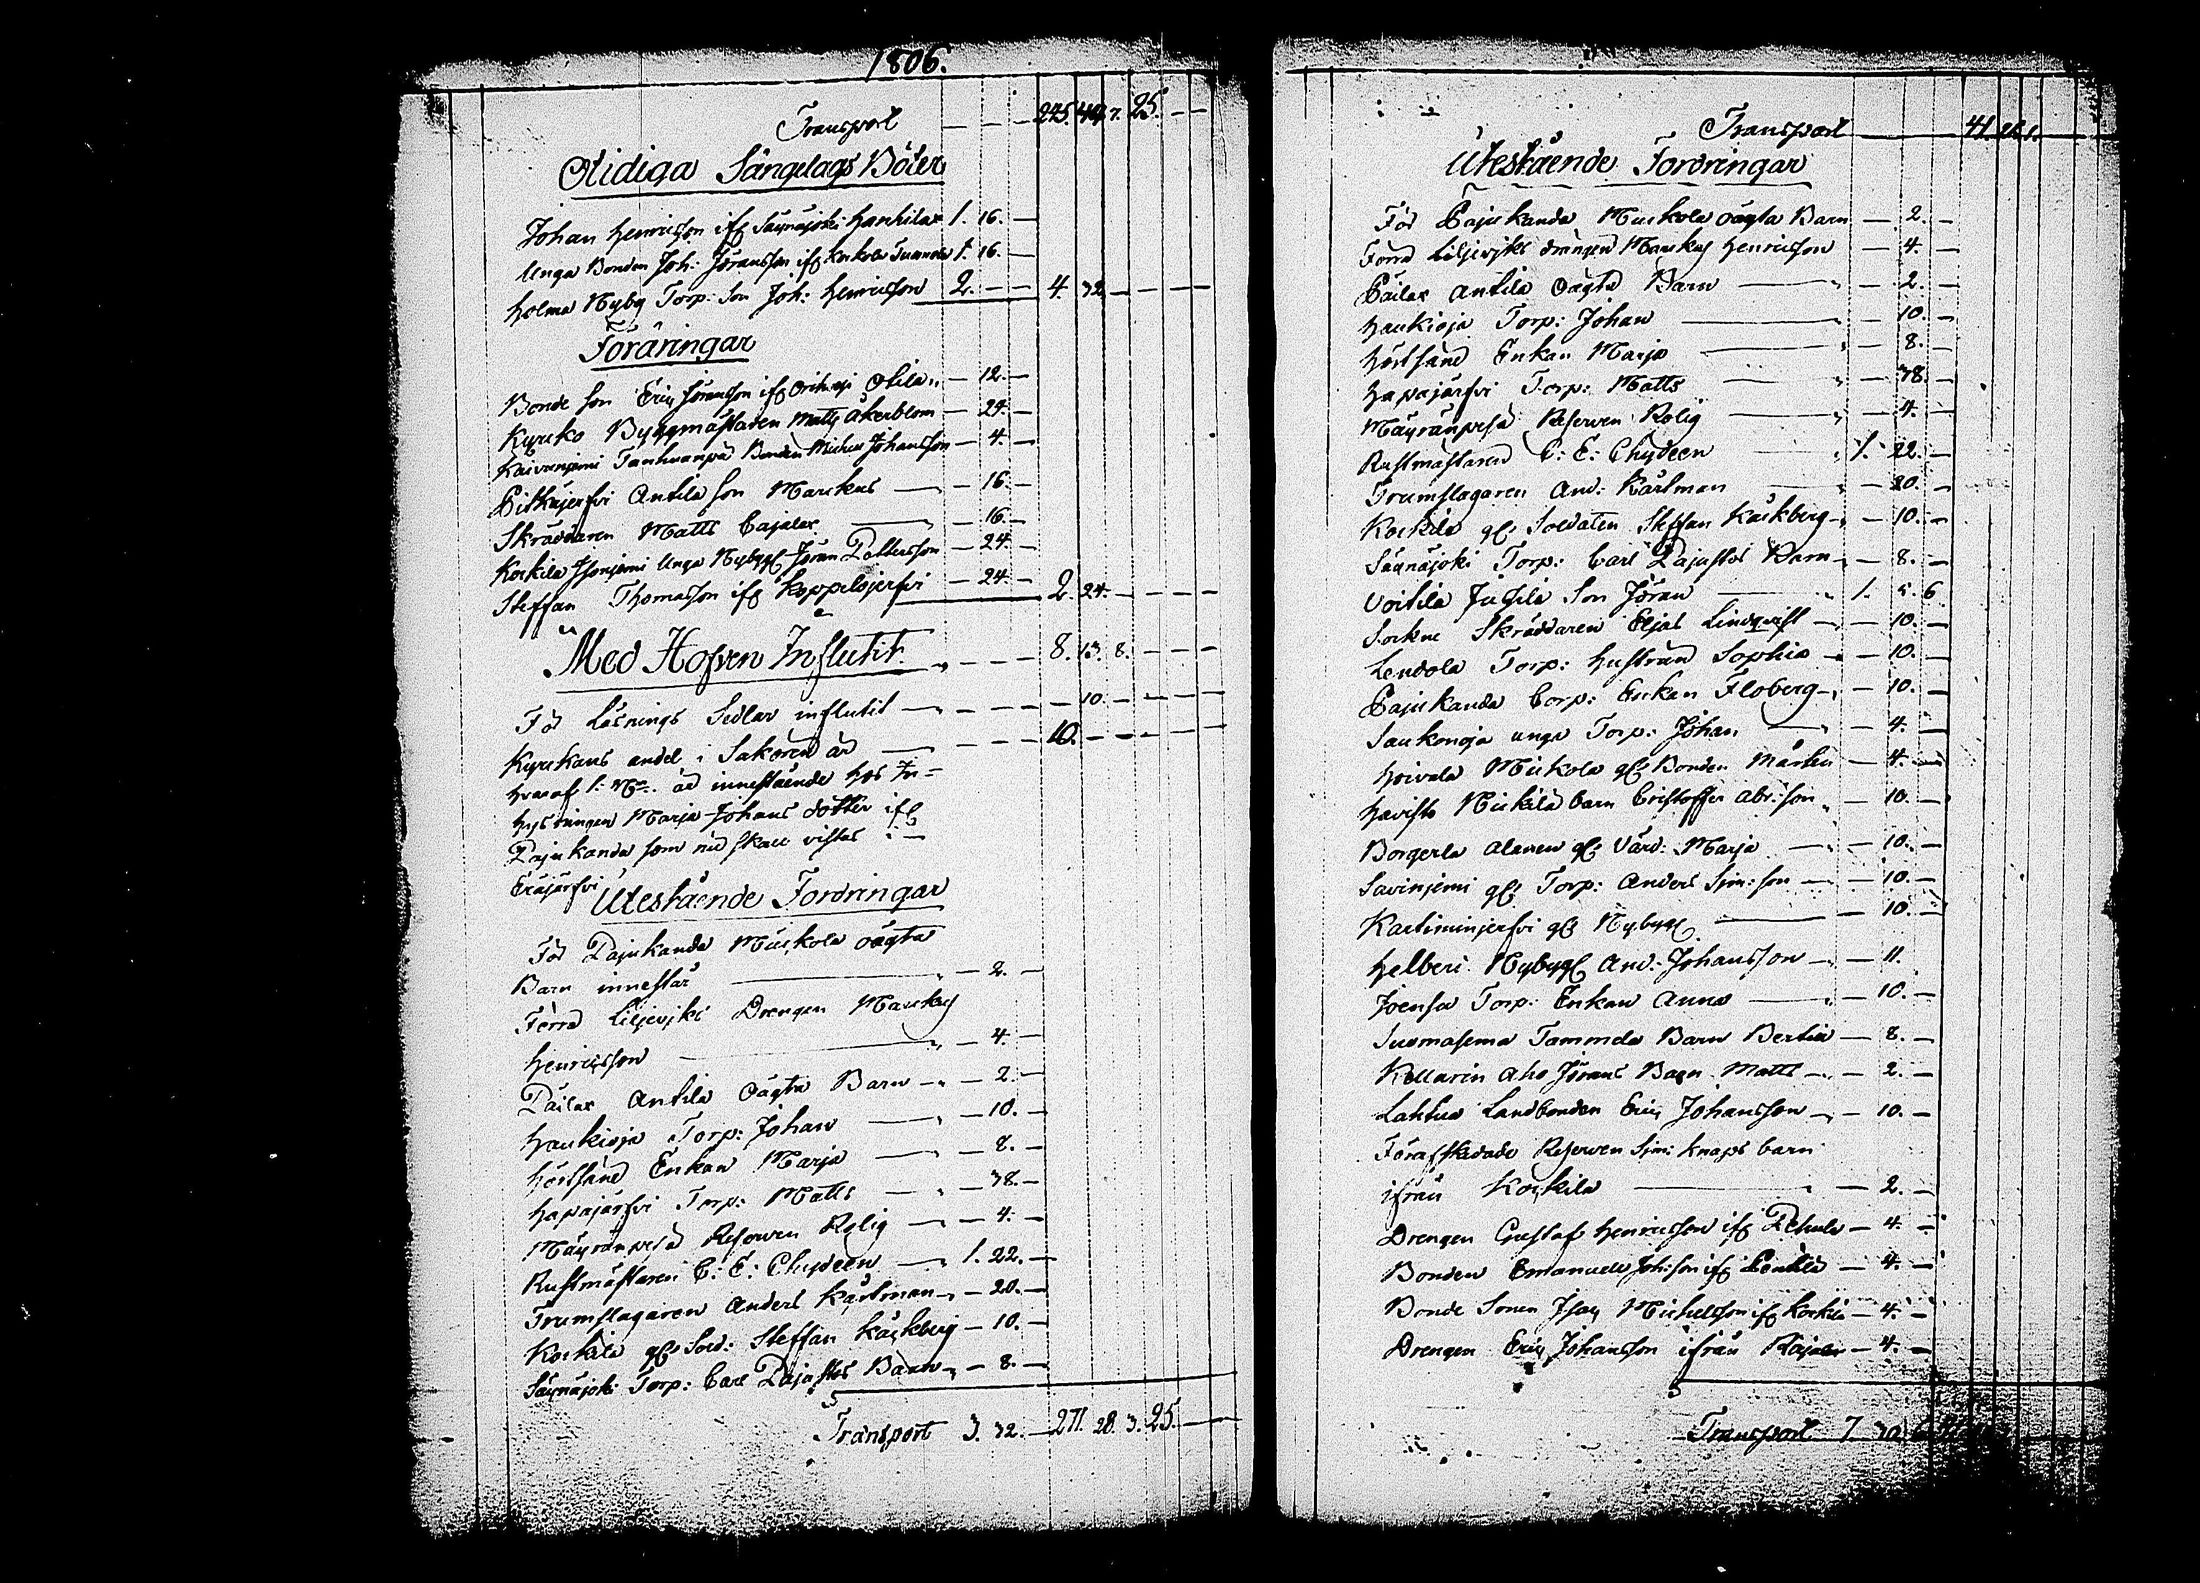 1806.
Transport — — — 245. 44. 7. 25. — —
Otidiga Sängelags Böter
Johan Henricsson ifr Säynäjoki Hanhilax 1. 16. —
Unga Bonden Joh: Jöransson ifr 1. 16. —
Holma Nybg Torp: Son Joh: Henricsson 2. — — 4. 32 — — — —
Föräringar
Bonde Son Eric Jöransson ifr Otila — 12. —
Kyrko Byggmästaren Matts Åkerblom — 24. —
Bonden Michel Johansson — 4. —
Pitkäjerfvi Antila Son Marckus — — 16. —
Skräddaren Matts Cajalax — — 16. —
Koskila Unga Nybygg Jöran Pettersson — 24. —
Steffan Thomasson ifr Koppelojerfvi — 24. — 2. 24. — — — —
Med Hofven Influtit — — — — 8. 13. 8. — — —
För Läsnings Sedlar influtit — — — — — 10. — — — —
Kyrckans andel i Sakören är — — — — 10. — — — — —
hvaraf 1: Rd. är innestående hos In=
hysningen Marja Johans dotter ifr
Pajukanda som nu skall vistas i —
Eräjärfvi
Utestående Fordringar
För Pajukanda Mückola oägta
Barn innestår — — 2. —
Förra Liljevjks Drengen Marckus
Henricsson — — 4. —
Päilax Antila Oägta Barn — — 2. —
Haukioja Torp: Johan — — 10. —
Hörtsänd Enkan Marja — — 8. —
Hapajärfvi Torp: Matts — — 38. —
Mäyränpesä Reserven Rolig — — 4. —
Rustmästaren C: E: Chydeen — 1. 22. —
Trumslagaren Anders Kärlman — — 20. —
Koskila gl Sold: Steffan Käckberg — 10. —
Säynäjoki Torp: Carl Pajastos Barn — — 8. —
Transport 3. 32. — 271. 28. 3. 25. — —
Transport — 41. 26. 1.
Utestående Fordringar
För Pajukanda Muckola oägta Barn — 2. —
Förra Liljevjks drängen Marckus Henricsson — 4. —
Päilax Antila Oägta Barn — — 2. —
Haukioja Torp: Johan — — 10. —
Hörtsänd Enkan Marja — — 8. —
Hapajärfvi Torp: Matts — — 38. —
Mäyränpesä Reserven Rolig — — 4. —
Rustmästaren C: E: Chydeen — 1. 22. —
Trumslagaren And: Kärlman — — 20. —
Koskila gl Soldaten Steffan Käckberg — — 10. —
Säynäjoki Torp: Carl Pajastos Barn — — 8. —
Voitila Jussila Son Jöran — 1. 5. 6
Sockne Skräddaren Elias Lindqvist — — 10. —
Lendola Torp: Hustrun Sophia — — 10. —
Pajukanda Corp: Enkan Floberg — — 10. —
Saukonoja unga Torp: Johan — — 4. —
Hoivala Mickola gl Bonden Mårten — 4. —
Havisto Mickila barn Cristoffer Abr:son — 10. —
Borgerla Alanen gl Värd: Marja — — 10. —
Savinjemi gl Torp: Anders Sim:son — — 10. —
Kartiminjerfvi gl Nybygg — — 10. —
Helberi Nybygg And: Johansson — — 11.
Joensu Torp: Enkan Anna — — 10. —
Tammela Barn Bertia — 8. —
Kellarin aho Jörans Barn Matts — — 2. —
Lahtua Landbonden Eric Johansson — — 10. —
Förafskedade Reserven Sim: Knaps barn
ifrån Koskila — — 2. —
Drengen Gustaf Henricsson ifr — 4. —
Bonden Emanuel Joh:son ifr Pentilä — 4. —
Bonde Sonen Isac Michelsson ifr — 4. —
Drengen Eric Johansson ifrån Rajala — 4. —
Transport 7. 30.